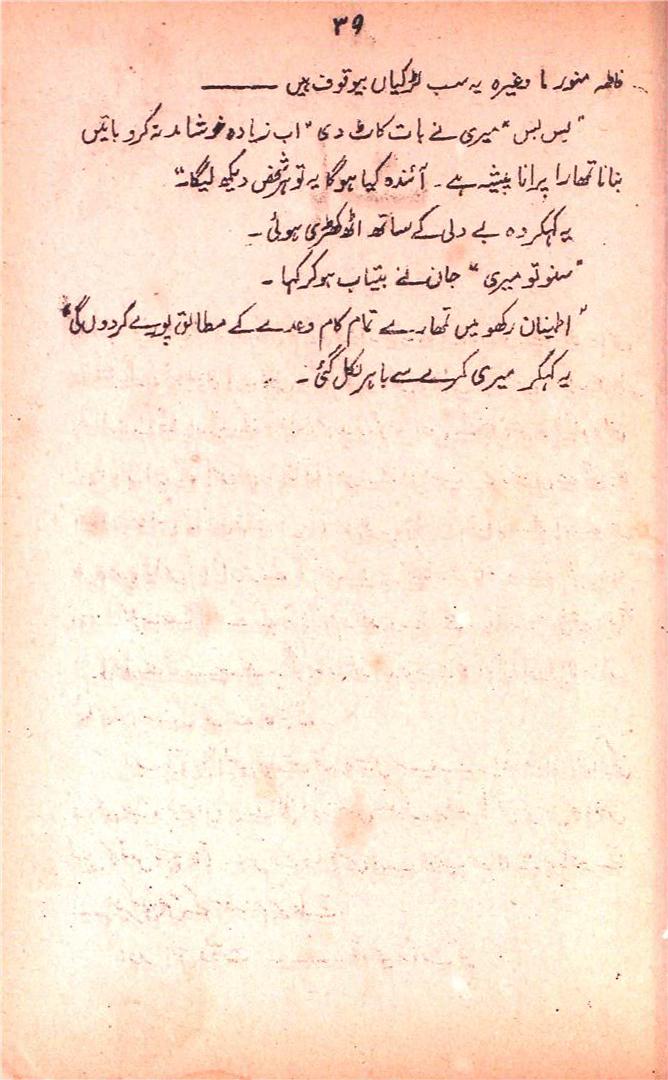 ۳۹
فاطمہ منورما وغیرہ یہ سب لڑکیاں بیوقوف ہیں ———
"بس بس" میری نے بات کاٹ دی "اب زیادہ خوشامد نہ کرو باتیں
بنانا تمھارا پرانا پیشہ ہے۔ آئندہ کیا ہوگا یہ تو ہر شخص دیکھ لیگا۔"
یہ کہکر وہ بے دلی کے ساتھ اٹھ کھڑی ہوئی۔
"سنو تو میری" جان نے بیتاب ہو کر کہا۔
"اطمینان رکھو میں تمھارے تمام کام وعدے کے مطابق پورے کردوں گی"
یہ کہکر میری کمرے سے باہر نکل گئی۔